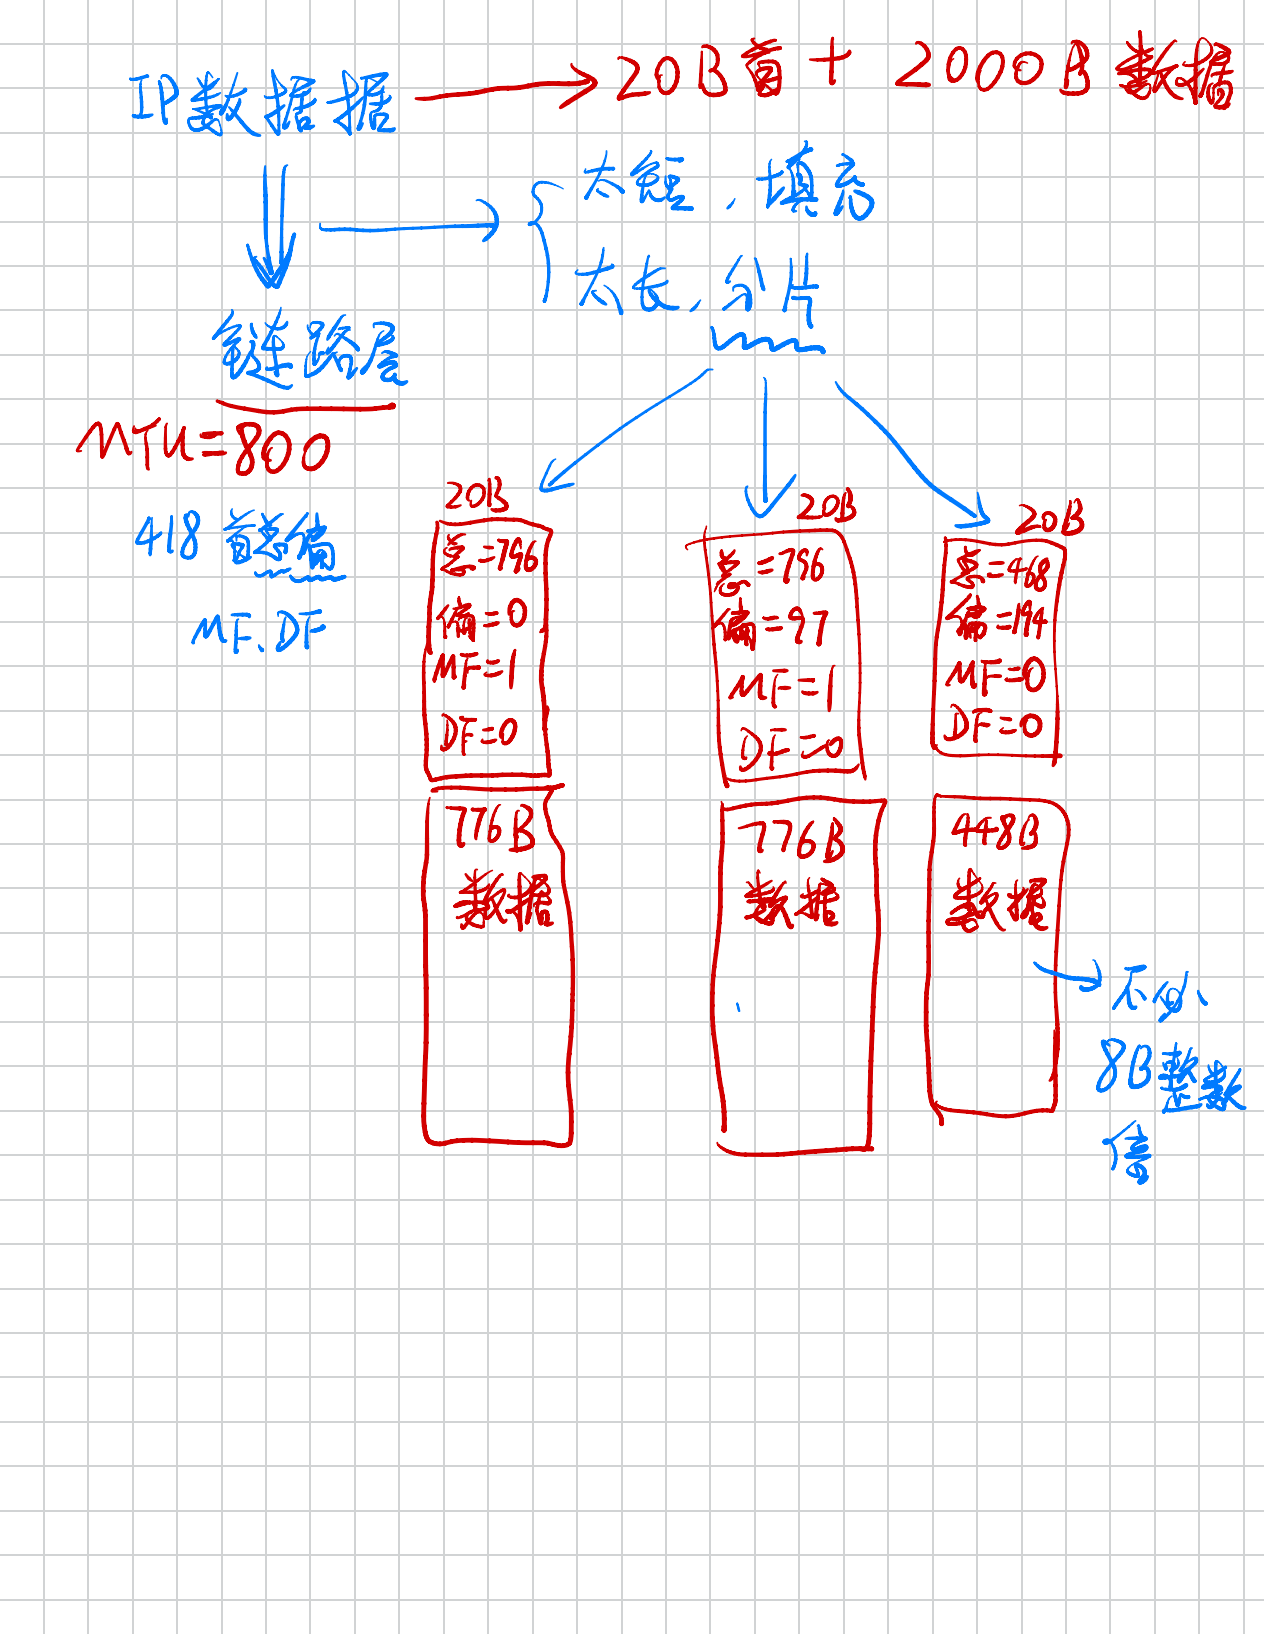 IP数据据 → 20B首 + 2000B数据
太短，填充
太长，分片
链路层
MTU=800
418 首总偏
MF、DF
20B
总=796
偏=0
MF=1
DF=0
776B
数据
20B
总=796
偏=97
MF=1
DF=0
776B
数据
20B
总=468
偏=194
MF=0
DF=0
448B
数据
不必
8B整数
倍